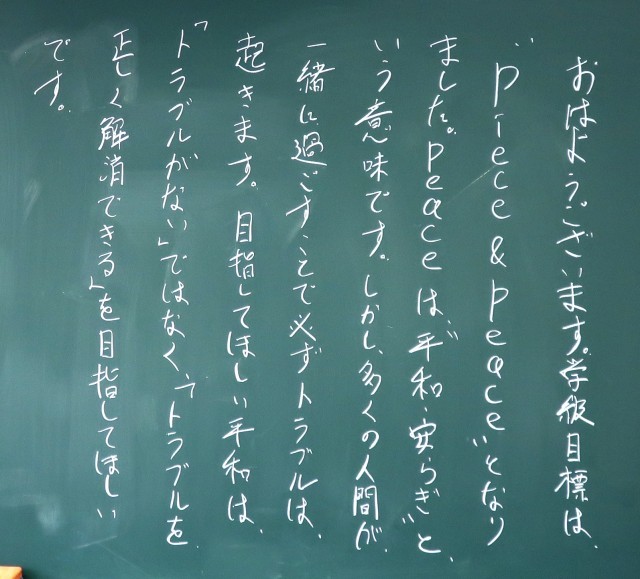 おはようございます。学級目標は、
"piece & peace"となり
ました。peaceは、"平和・安らぎ"と、
いう意味です。しかし、多くの人間が、
一緒に過ごすことで必ずトラブルは、
起きます。目指してほしい平和は、
「トラブルがない」ではなく、「トラブルを
正しく解消できる」を目指してほしい
です。